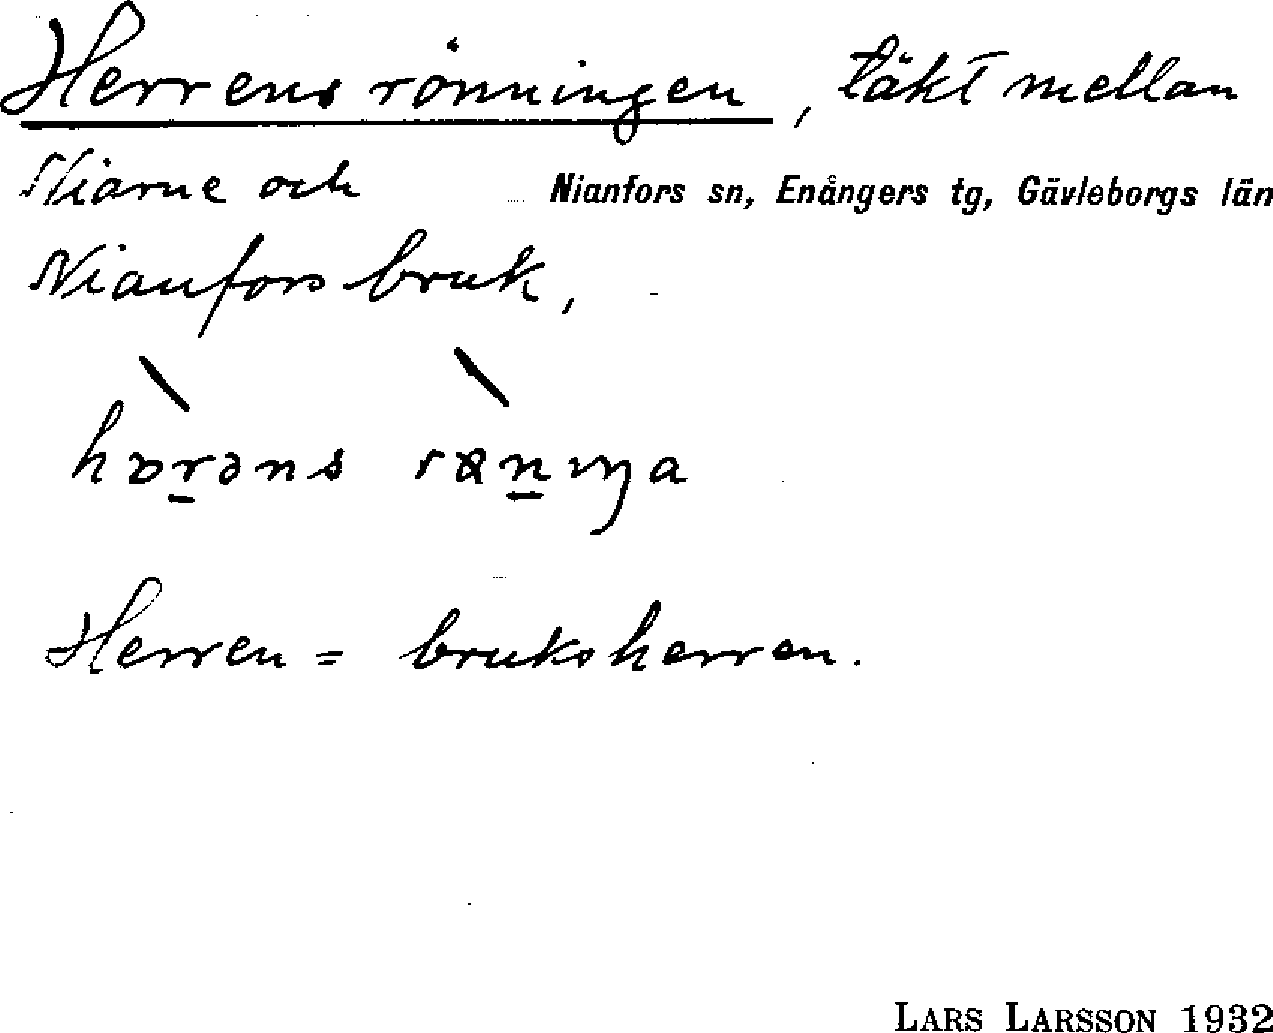 Herrens rönningen, täkt mellan
Niarne och
Nianfors sn, Enångers tg, Gävleborgs län
Nianfors bruk,
Herren = bruksherren.
LARS LARSSON 1932